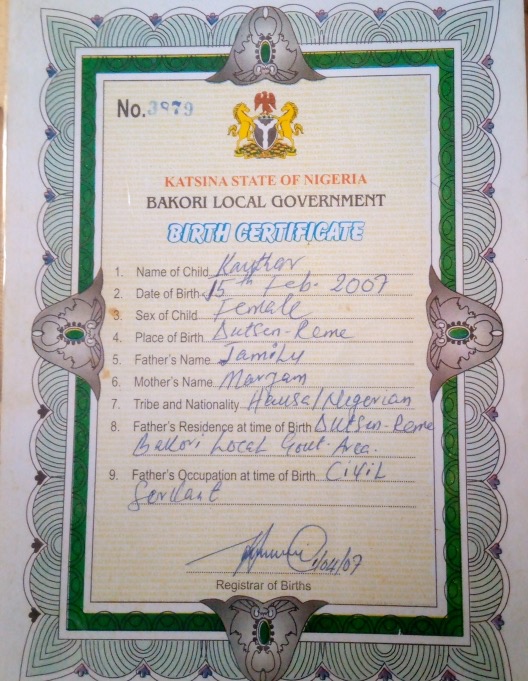 No. 3879
KATSINA STATE OF NIGERIA
BAKORI LOCAL GOVERNMENT
BIRTH CERTIFICATE
1. Name of Child Kauthar
2. Date of Birth 15th Feb. 2007
3. Sex of Child Female
4. Place of Birth Dutsen-Reme
5. Father's Name Jamilu
6. Mother's Name Maryam
7. Tribe and Nationality Hausa/Nigerian
8. Father's Residence at time of Birth Dutsen-Reme
Bakori Local Govt. Area.
9. Father's Occupation at time of Birth Civil
Servant
/04/07
Registrar of Births